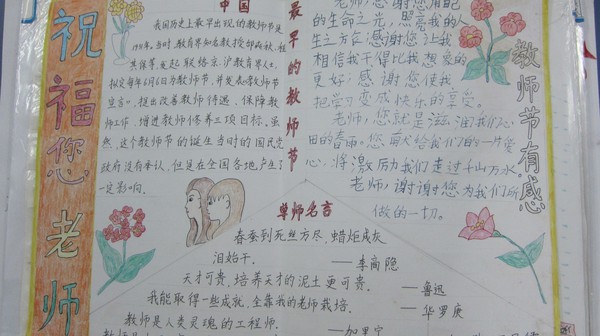 祝福您老师
中国
最早的教师节
我国历史上最早出现的教师节是
1931年，当时，教育界知名教授邰爽秋、程
其保等，发起联络京、沪教育界人士，
拟定每年6月6日为教师节，并发表《教师节
宣言》，提出改善教师待遇，保障教
师工作，增进教师修养三项目标，虽
然，这个教师节的诞生当时的国民党
政府没有承认，但是在全国各地产生了
一定影响。
教师节有感
老师，感谢您用自己
的生命之光，照亮我的人
生之方农；感谢您让我
相信我干得比我想象的
更好；感谢您使我
把学习变成快乐的享受。
老师，您就是滋润我们心
田的春雨。您献给我们的一片爱
心，将激励我们走过千山万水
老师，谢谢您为我们所
做的一切。
尊师名言
春蚕到死丝方尽，蜡炬成灰
泪始干。——李商隐
天才可贵，培养天才的泥土更可贵。——鲁迅
我能取得一些成就，全靠我的老师栽培。——华罗庚
教师是人类灵魂的工程师。——加里宁